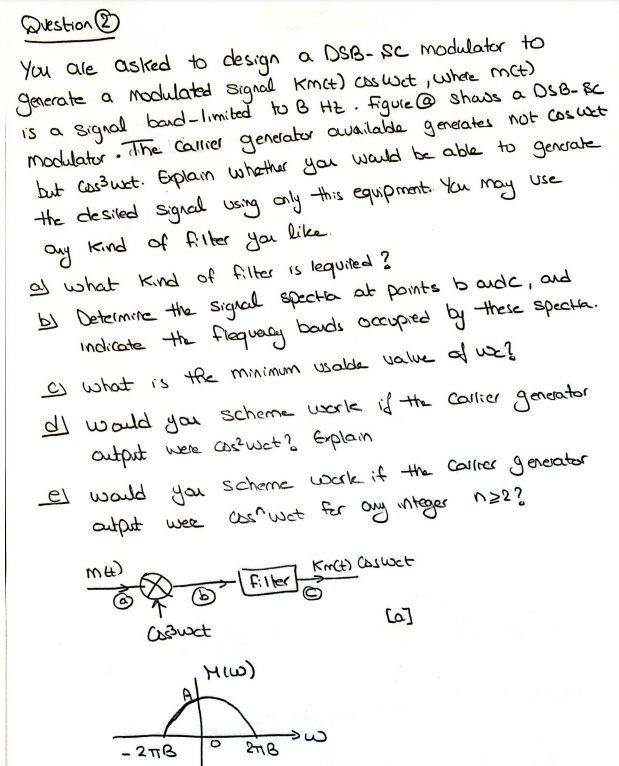 Question ②
You are asked to design a DSB-SC modulator to
generate a modulated signal Km(t) cos wct, where m(t)
is a signal band-limited to B Hz. Figure ⓐ shows a DSB-SC
modulator. The carrier generator available generates not cos wct
but cos³wct. Explain whether you would be able to generate
the desired signal using only this equipment. You may use
any kind of filter you like.
a) what kind of filter is required?
b) Determine the signal spectra at points b and c, and
indicate the frequency bands occupied by these spectra.
c) what is the minimum usable value of wc?
d) would you scheme work if the carrier generator
output were cos²wct? Explain
e) would you scheme work if the carrier generator
output wee cosⁿwct for any integer n≥2?
m(t)
ⓐ
ⓑ
filter
Km(t) cos wct
ⓒ
cos³wct
[a]
M(w)
A
-2πB
0
2πB
w